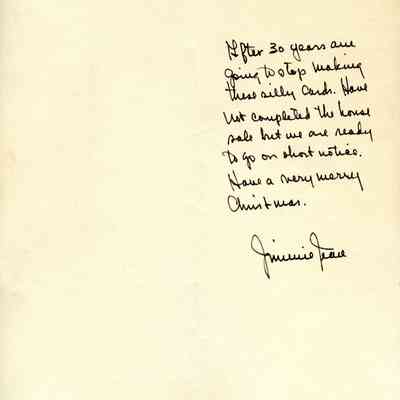 After 30 years are
going to stop making
these silly cards. Have
not completed the house
sale but we are ready
to go on short notice.
Have a very merry
Christmas.
Jimmie